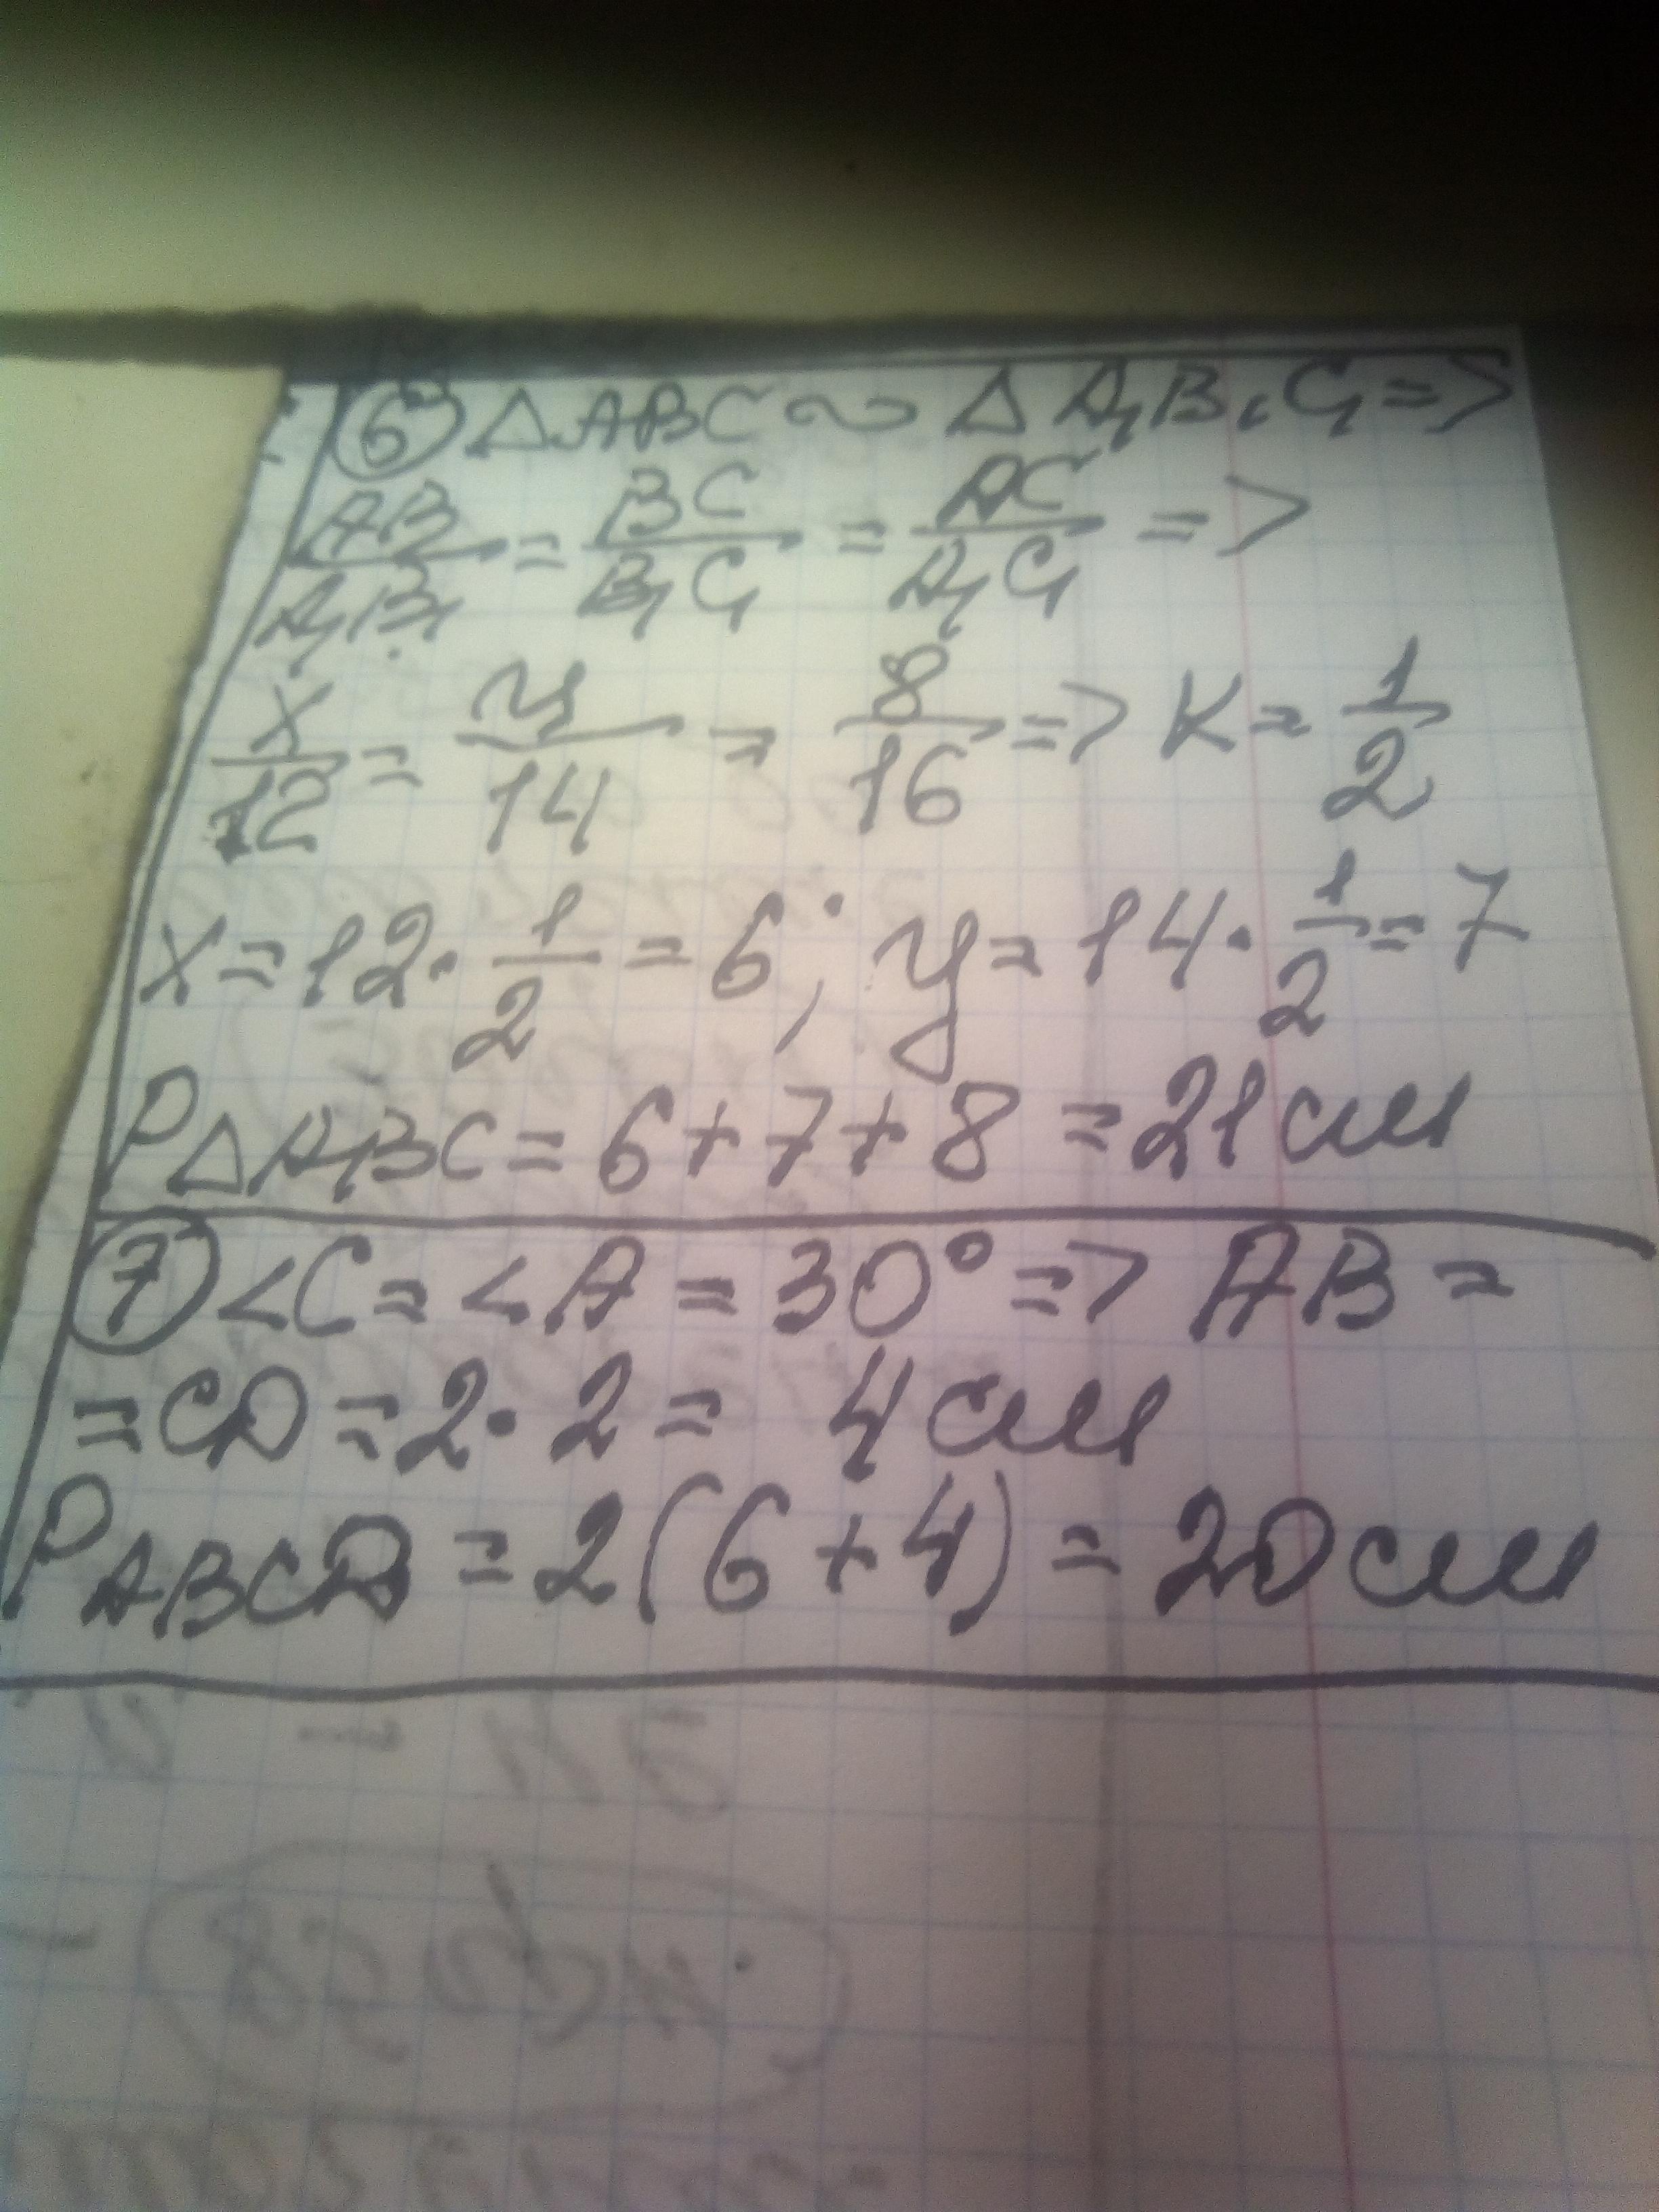 6 △ABC ∾ △A₁B₁C₁ =>
AB/A₁B₁ = BC/B₁C₁ = AC/A₁C₁ =>
x/12 = y/14 = 8/16 => K = 1/2
x = 12 · 1/2 = 6; y = 14 · 1/2 = 7
P△ABC = 6 + 7 + 8 = 21 см
7 <C = <A = 30° => AB =
= CD = 2 · 2 = 4 см
PABCD = 2(6 + 4) = 20 см